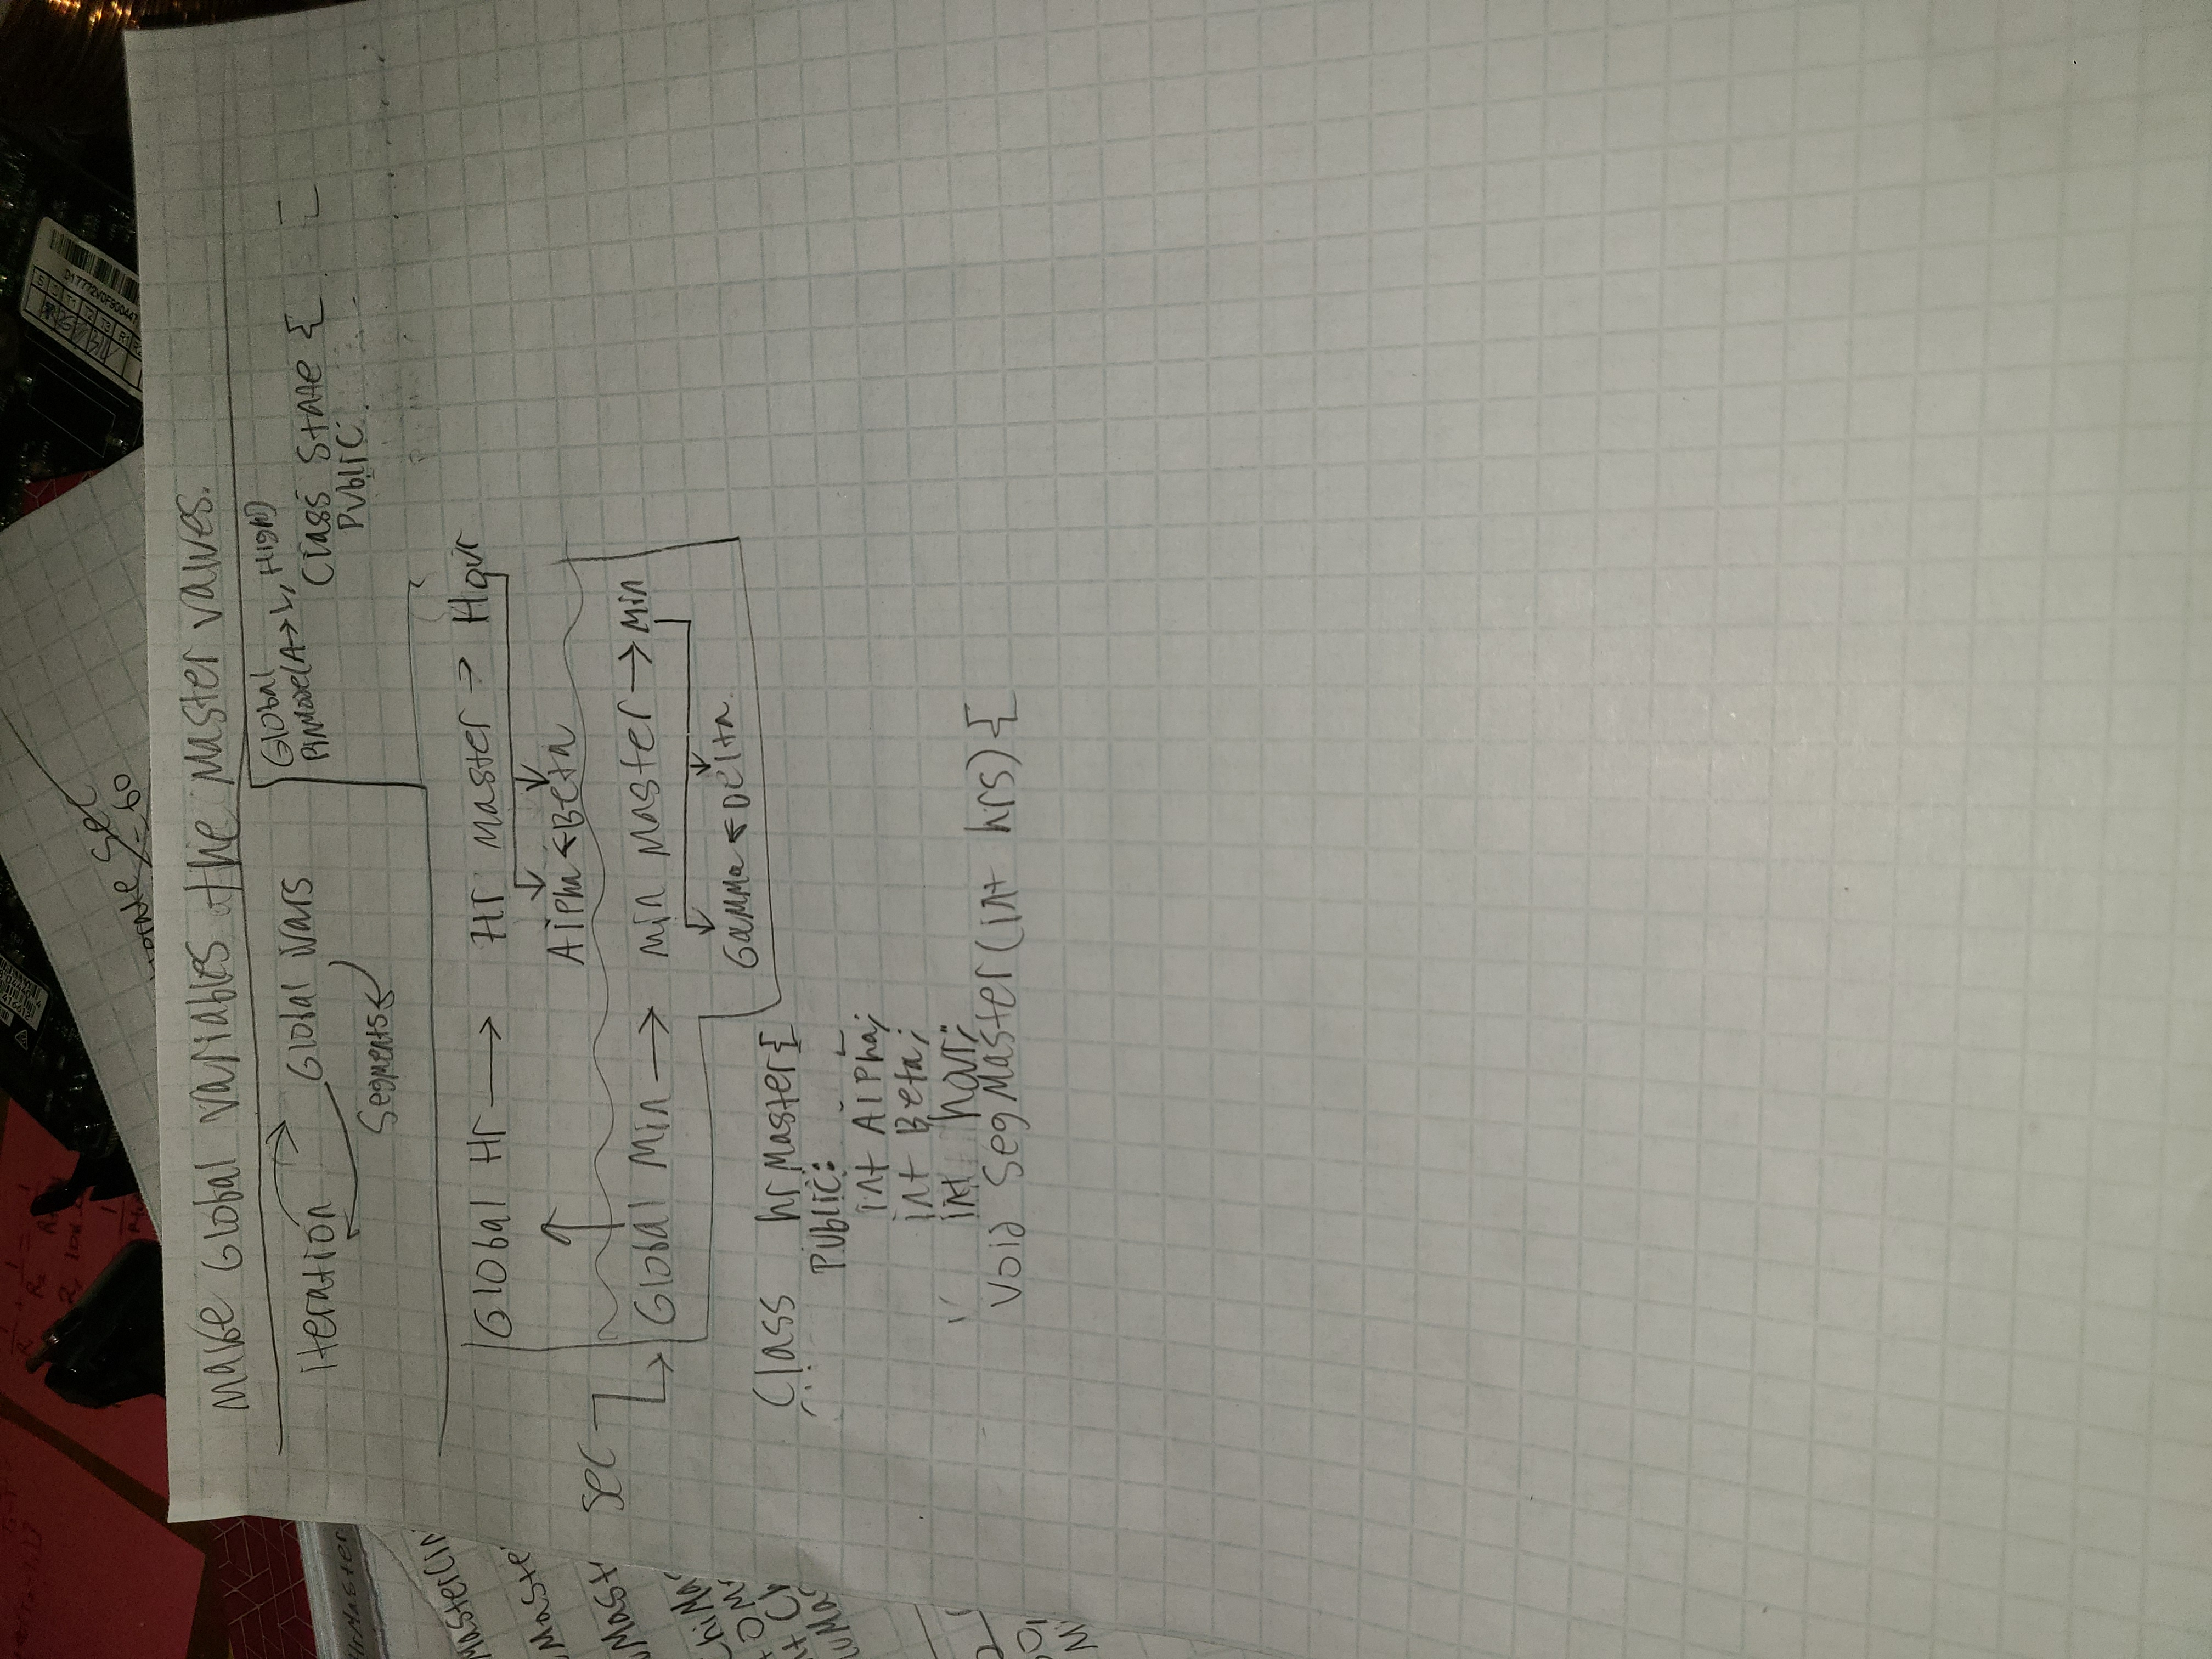 Iterate Sec
= 60
Make Global variables the Master values.
iteration
Global Vars
Segments
Global
PinMode(A→L, High)
Class State {
Public:
Global Hr → Hr Master → Hour
Alpha ← Beta
Sec
Global Min → Min Master → Min
Gamma ← Delta
Class hrMaster{
Public:
int Alpha;
int Beta;
int hour;
Void SegMaster(int hrs) {
HrMaster
Master(in
Master
Mast
ChiMa